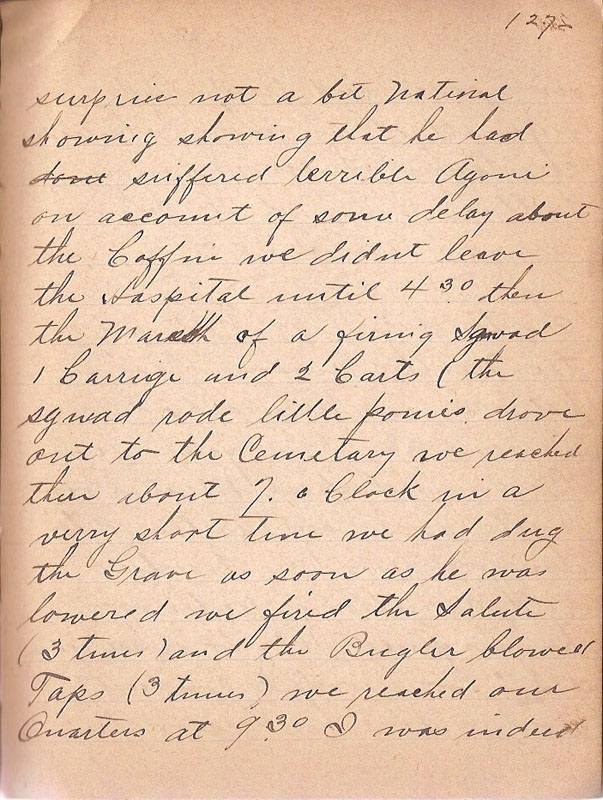 127
surprise not a bit National
showing showing that he had
done suffered terrible Agoni
on account of some delay about
the Coffin we didnt leave
the Haspital until 4 30 then
the March of a firing Sqwad
1 Carrige and 2 Carts ( the
sqwad rode little ponies drove
out to the Cemetary we reached
then about 7. o Clock in a
verry short time we had dug
the Grave as soon as he was
lowered we fired the Salute
(3 times) and the Bugler blowed
Taps (3 times) we reached our
Quarters at 9 30 I was indeed